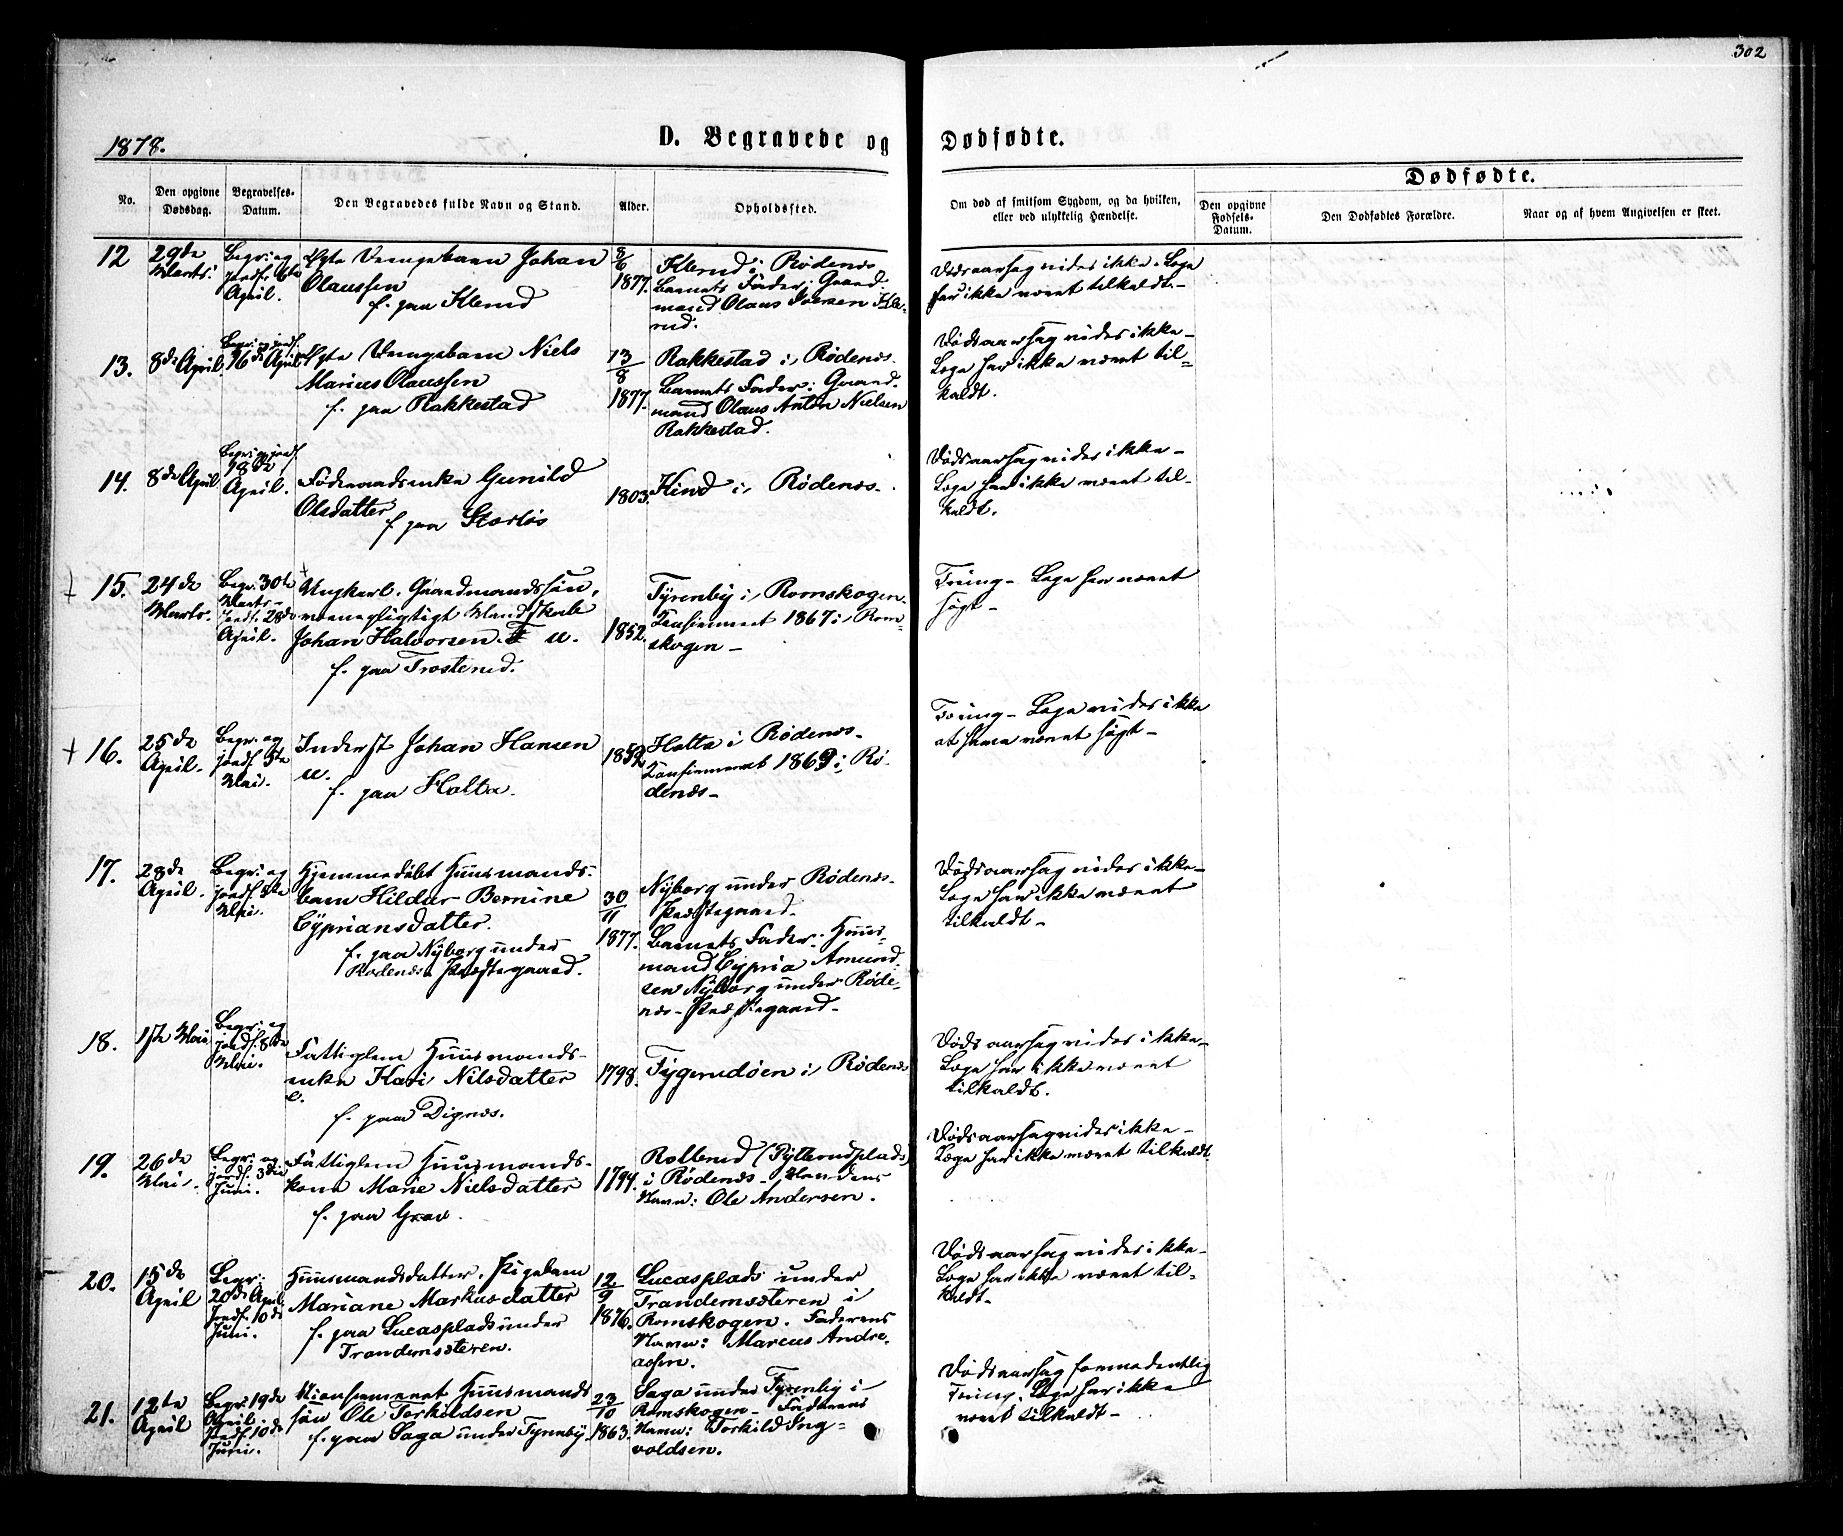 302
1878.
D. Begravede og Dødfødte.
Dødfødte.
No.
Den opgivne Dødsdag.
Begravelses-Datum.
Den Begravedes fulde Navn og Stand.
Alder.
Opholdssted.
Om død af smitsom Sygdom, og da hvilken, eller ved ulykkelig Hændelse.
Den opgivne Fødsels-Datum.
Den Dødfødtes Forældre.
Naar og af hvem Angivelsen er skeet.
12
29de Marts
Begr: og jordf. 6te April.
Ægte Drengebarn Johan
Olaussen
f. paa Klerud
8/6 1877.
Klerud i Rødenæs
Barnets Fader: Gaard-
mand Olaus Iversen Kle-
rud.
Dødsaarsag vides ikke. Læge
har ikke været tilkaldt.-
13.
8de April.
Begr: og jordf. 16de April
Ægte Drengebarn Niels
Marius Olaussen
f. paa Rakkestad
13/8 1877.
Rakkestad i Rødenæs.
Barnets Fader: Gaard-
mand Olaus Anton Nielsen
Rakkestad.
Dødsaarsag vides ikke-
Læge har ikke været til-
kaldt.
14.
8de April
Begr: og jordf. 18de April.
Føderaadsenke Gunild
Olsdatter
f. paa
1803.
Kind i Rødenæs.
Dødsaarsag vides ikke-
Læge har ikke været til-
kaldt.
15.
24de Marts.
Begr. 30te Marts-
Jordf. 28de April.
Ungkarl. Gaardmandssøn,
værnepligtigt Mandskab
Johan Halvorsen. u.
f. paa Trosterud.
1852.
Tyrenby i Romskogen.
Konfirmeret 1867 i Rom-
skogen-
Tæring- Læge har været
søgt-
16.
25de April.
Begr: og jordf. 5te Mai.
Inderst Johan Hansen
u.
f. paa Holta.
Holta i Rødenæs-
Konfirmeret 1869 i Rø-
denæs-
Tæring- Læge vides ikke
at have været søgt-
17.
28de April.
Begr: og jordf. 8te Mai.
Hjemmedøbt Huusmands-
barn Hildur Bernine
Cypriansdatter.
f. paa Nyborg under
Rødenæs Præstegaard.
30/11 1877.
Nyborg under Rødenæs-
Præstegaard-
Barnets Fader: Huus-
mand Cypria Amund-
sen Nyborg under Røde-
næs-Præstegaard-
Dødsaarsag vides ikke-
Læge har ikke været
tilkaldt-
18.
1ste Mai
Begr: og jordf. 8de Mai.
Fattiglem Huusmands-
enke Kari Nilsdatter
e.
f. paa Dignæs.
1798.
Tygerudøen i Rødenæs
Dødsaarsag vides ikke-
Læge har ikke været
tilkaldt.
19.
26de Mai.
Begr: og jordf. 3die Juni.
Fattiglem Huusmands-
kone Marie Nielsdatter
f. paa
1794.
Rolerud (Rytterudplads)
i Rødenæs- Mandens
Navn: Ole Andersen.
Dødsaarsag vides ikke-
Læge har ikke været tilkaldt.
20.
15de April
Begr: 20de April.
Jordf. 10de Juni.
Huusmandsdatter, Pigebarn
Mariane Markusdatter
f. paa Lucasplads under
Trandemsæteren.
12/9 1876.
Lucasplads under
Trandemsæteren i
Romskogen. Faderens
Navn: Marcus Andre-
asen.
Dødsaarsag vides ikke-
Læge har ikke været til-
kaldt-
21.
12te April
Begr: 19de April.
Jordf. 10de Juni.
Ukonfirmeret Huusmands
søn Ole Torkildsen
f. paa Saga under Tyrenby.
23/10 1863.
Saga under Tyrenby i
Romskogen- Faderens
Navn: Torkild Ing-
voldsen.
Dødsaarsag formodentlig
Tæring. Læge har ikke
været tilkaldt-